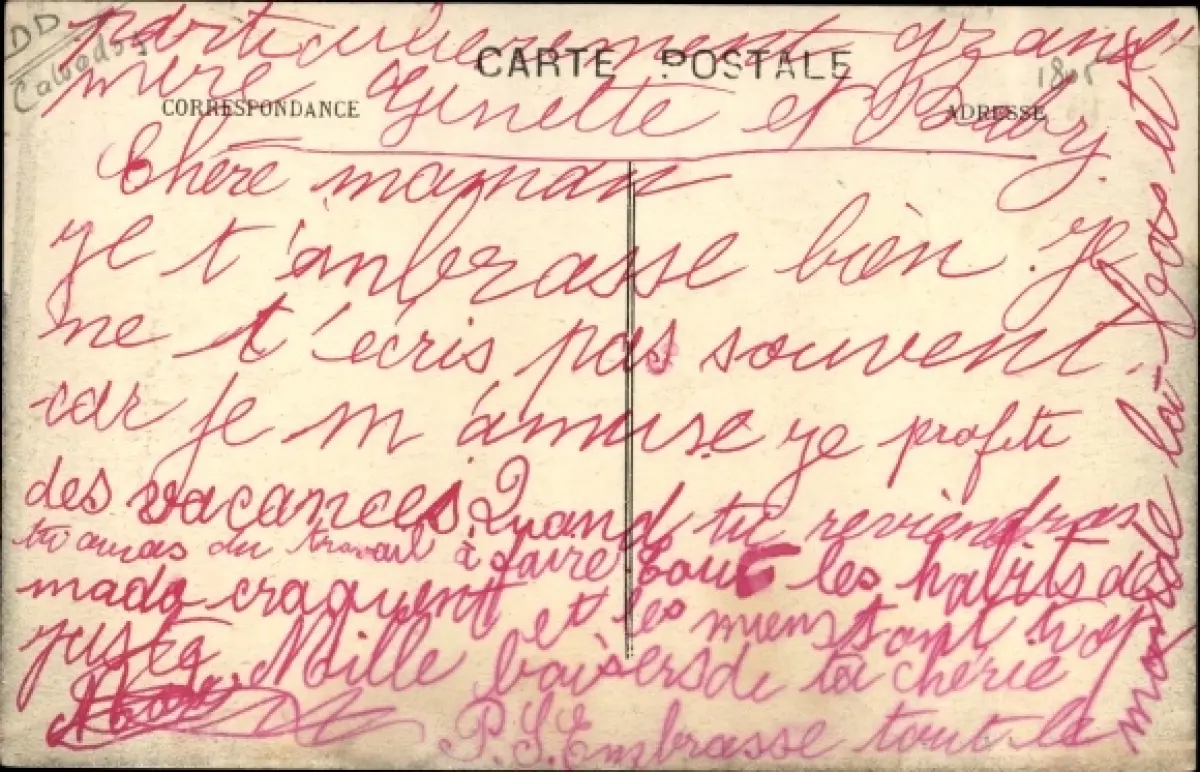 DD
Calvados
CARTE POSTALE
1805
CORRESPONDANCE
ADRESSE
Chère maman
je t'anbrasse bien. Je
ne t'écris pas souvent
car je m'amuse je profite
des vacances. Quand tu reviendras
tu auras du travail à faire tout les habits de
mado craquent et les miens sont trop
juste Mille baisers de ta chérie
P.S. Embrasse tout le
monde là-bas et
particulierement grand
mère Ginette et